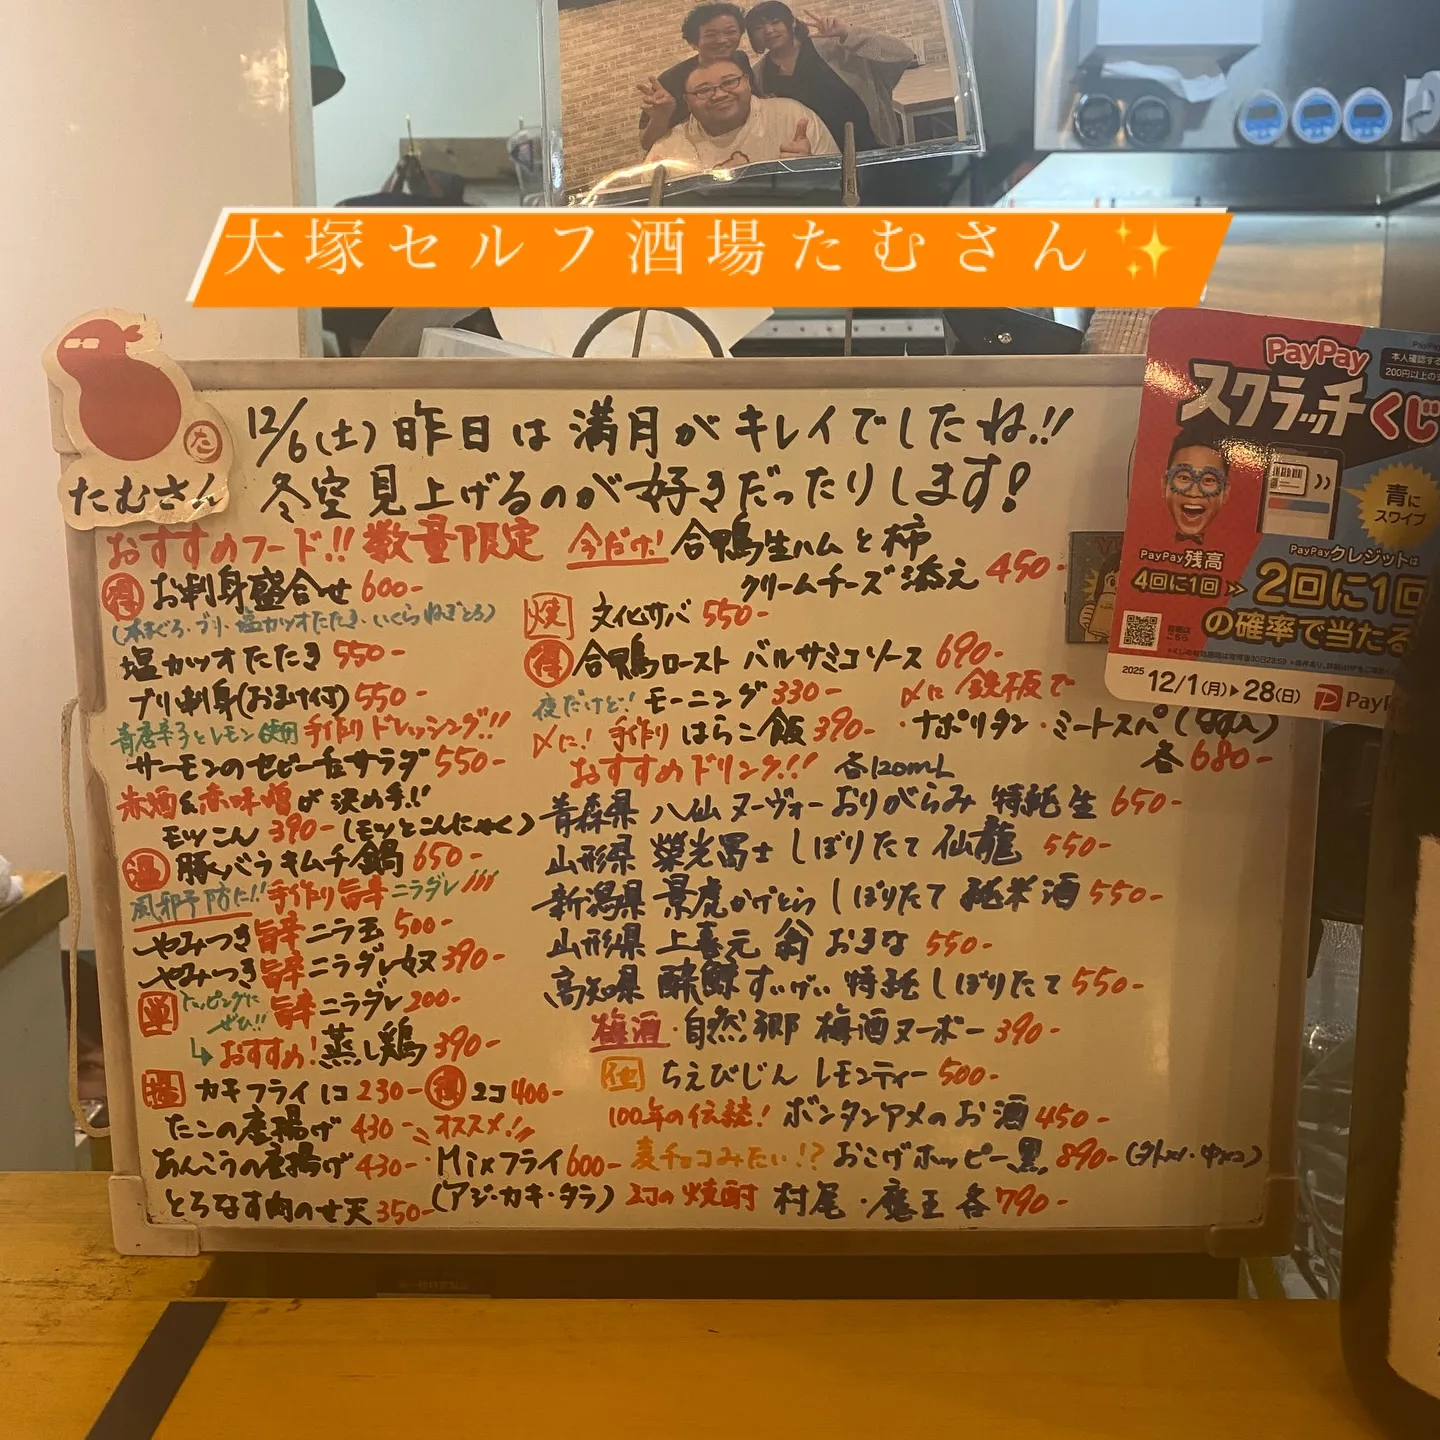 大塚セルフ酒場たむさん✨
た
たむさん
12/6(土)昨日は満月がキレイでしたね!!
冬空見上げるのが好きだったりします!
おすすめフード!! 数量限定
得 お刺身盛合せ 600-
(本まぐろ・ブリ・塩カツオたたき・いくらねぎとろ)
塩カツオたたき 550-
ブリ刺身(おまけ付) 550-
青唐辛子とレモン使用 手作りドレッシング!!
サーモンのセビーチェサラダ 550-
赤酒&赤味噌が決め手!!
モツこん 390- (モツとこんにゃく)
温 豚バラキムチ鍋 650-
風邪予防に!! 手作り旨辛ニラダレ!!!
やみつき旨辛ニラ玉 500-
やみつき旨辛ニラダレ奴 390-
単 トッピングにぜひ!! 旨辛ニラダレ 200-
↳おすすめ!蒸し鶏 390-
揚 カキフライ 1コ 230- 得 2コ 400-
たこの唐揚げ 430-
あんこうの唐揚げ 430-
とろなす肉のせ天 350-
オススメ!!
・Mixフライ 600-
(アジ・カキ・タラ)
今だけ! 合鴨生ハムと柿
クリームチーズ添え 450-
焼 文化サバ 550-
得 合鴨ロースト バルサミコソース 690-
夜だけど! モーニング 330-
〆に! 手作りはらこ飯 390-
〆に鉄板で
・ナポリタン・ミートスパ
各 680-
おすすめドリンク!!! 各120mL
青森県 八仙 ヌーヴォー おりがらみ 特純 生 650-
山形県 榮光冨士 しぼりたて 仙龍 550-
新潟県 景虎 かげとら しぼりたて 純米酒 550-
山形県 上喜元 翁 おきな 550-
高知県 酔鯨 すいげい 特純 しぼりたて 550-
梅酒・自然郷 梅酒ヌーボー 390-
他 ちえびじん レモンティー 500-
100年の伝統! ボンタンアメのお酒 450-
麦チョコみたい!? おこげホッピー黒 890-
幻の焼酎 村尾・魔王 各790-
PayPay
スクラッチくじ
本人確認する
200円以上の
青に
スワイプ
PayPay残高
4回に1回
PayPayクレジットは
2回に1回
の確率で当たる
2025 12/1(月)▶28(日)